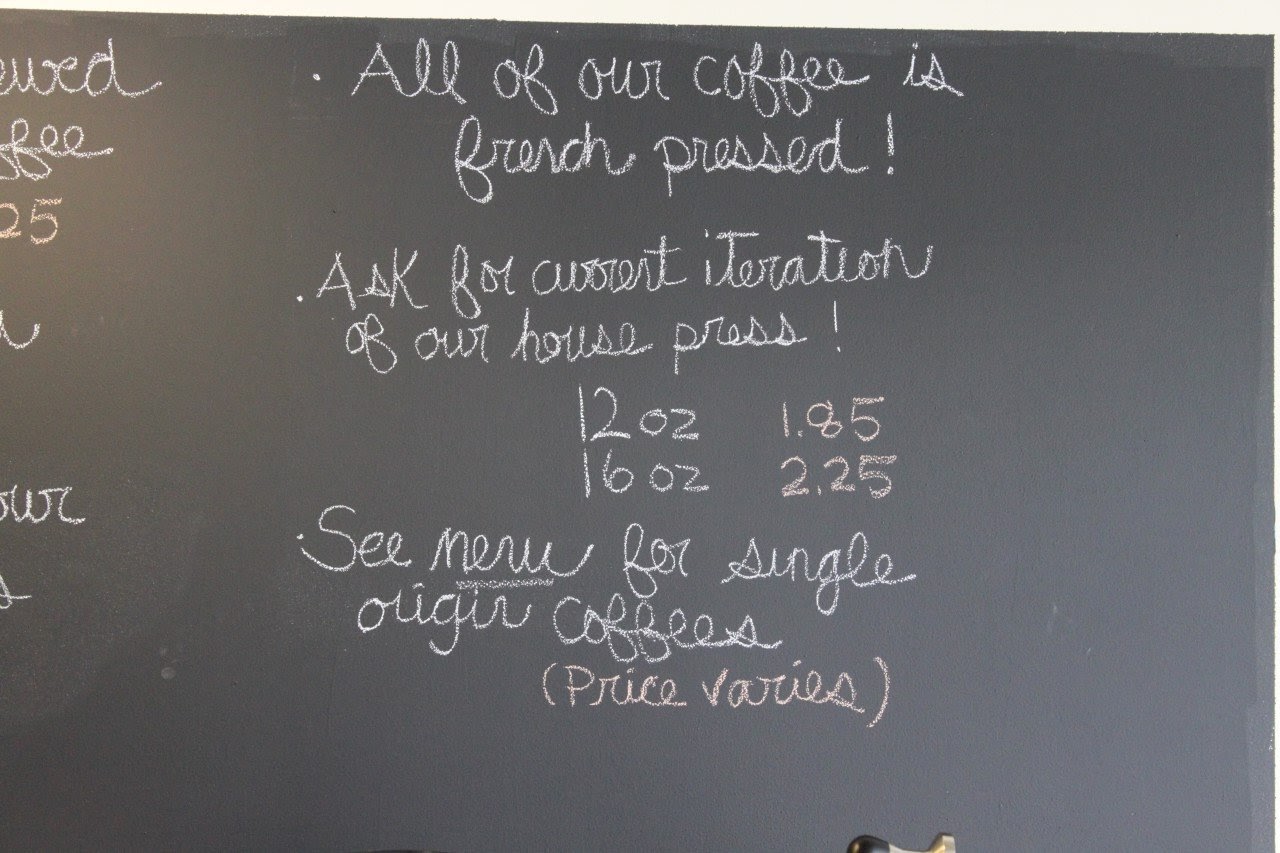 · All of our coffee is
french pressed!
· Ask for current iteration
of our house press!
12 oz 1.85
16 oz 2.25
· See menu for single
origin coffees
(Price varies)
25